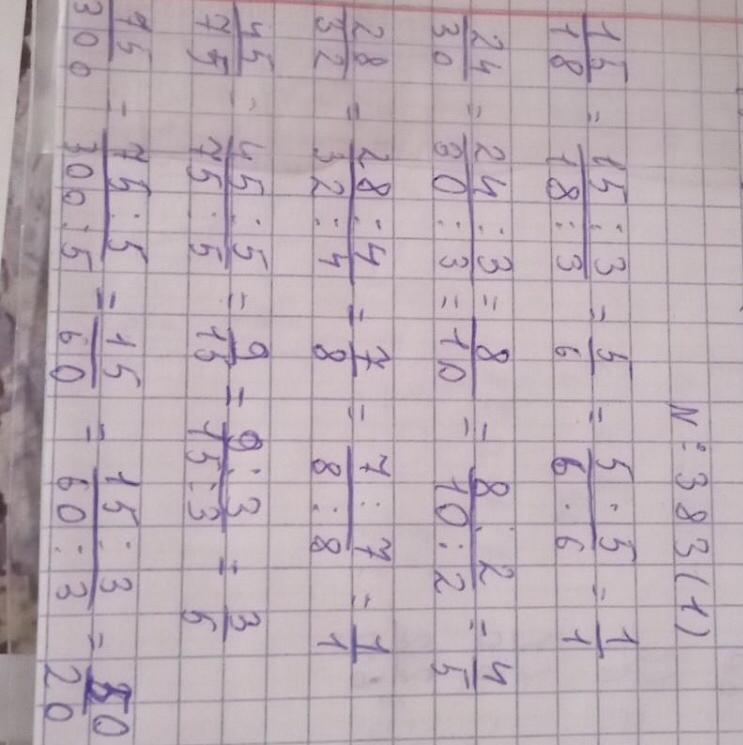 N:383(1)
15/18 = 15:3/18:3 = 5/6 = 5:5/6:6 = 1/1
24/30 = 24:3/30:3 = 8/10 = 8:2/10:2 = 4/5
28/32 = 28:4/32:4 = 7/8 = 7:7/8:8 = 1/1
45/75 = 45:5/75:5 = 9/15 = 9:3/15:3 = 3/5
75/300 = 75:5/300:5 = 15/60 = 15:3/60:3 = 50/20